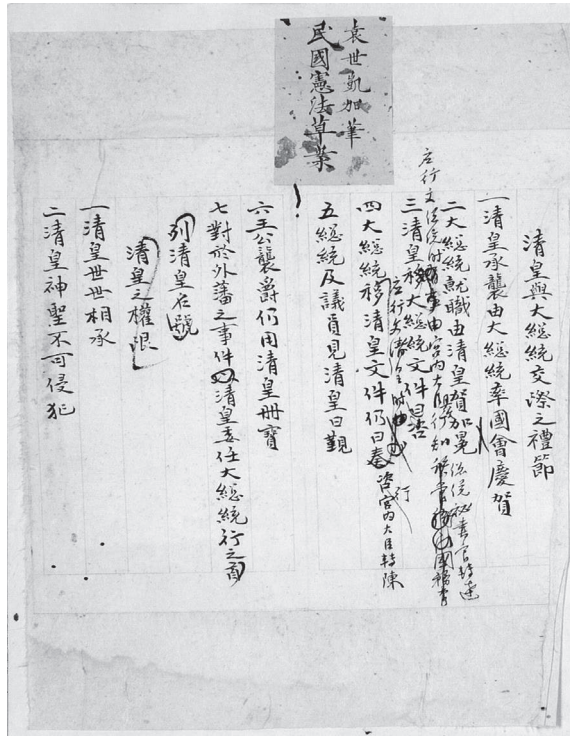 袁世凱加筆
民國憲法草案
清皇與大總統交際之禮節
一清皇承襲由大總統率國會慶賀
二大總統就職由清皇賀加冕
三清皇移大總統文件曰咨
四大總統移清皇文件仍曰奏
咨宮內大臣轉陳
五總統及議員見清皇曰覲
六王公襲爵仍用清皇冊寶
七對於外藩之事件 清皇委任大總統行之 首
列清皇名號
清皇之權限
一清皇世世相承
二清皇神聖不可侵犯